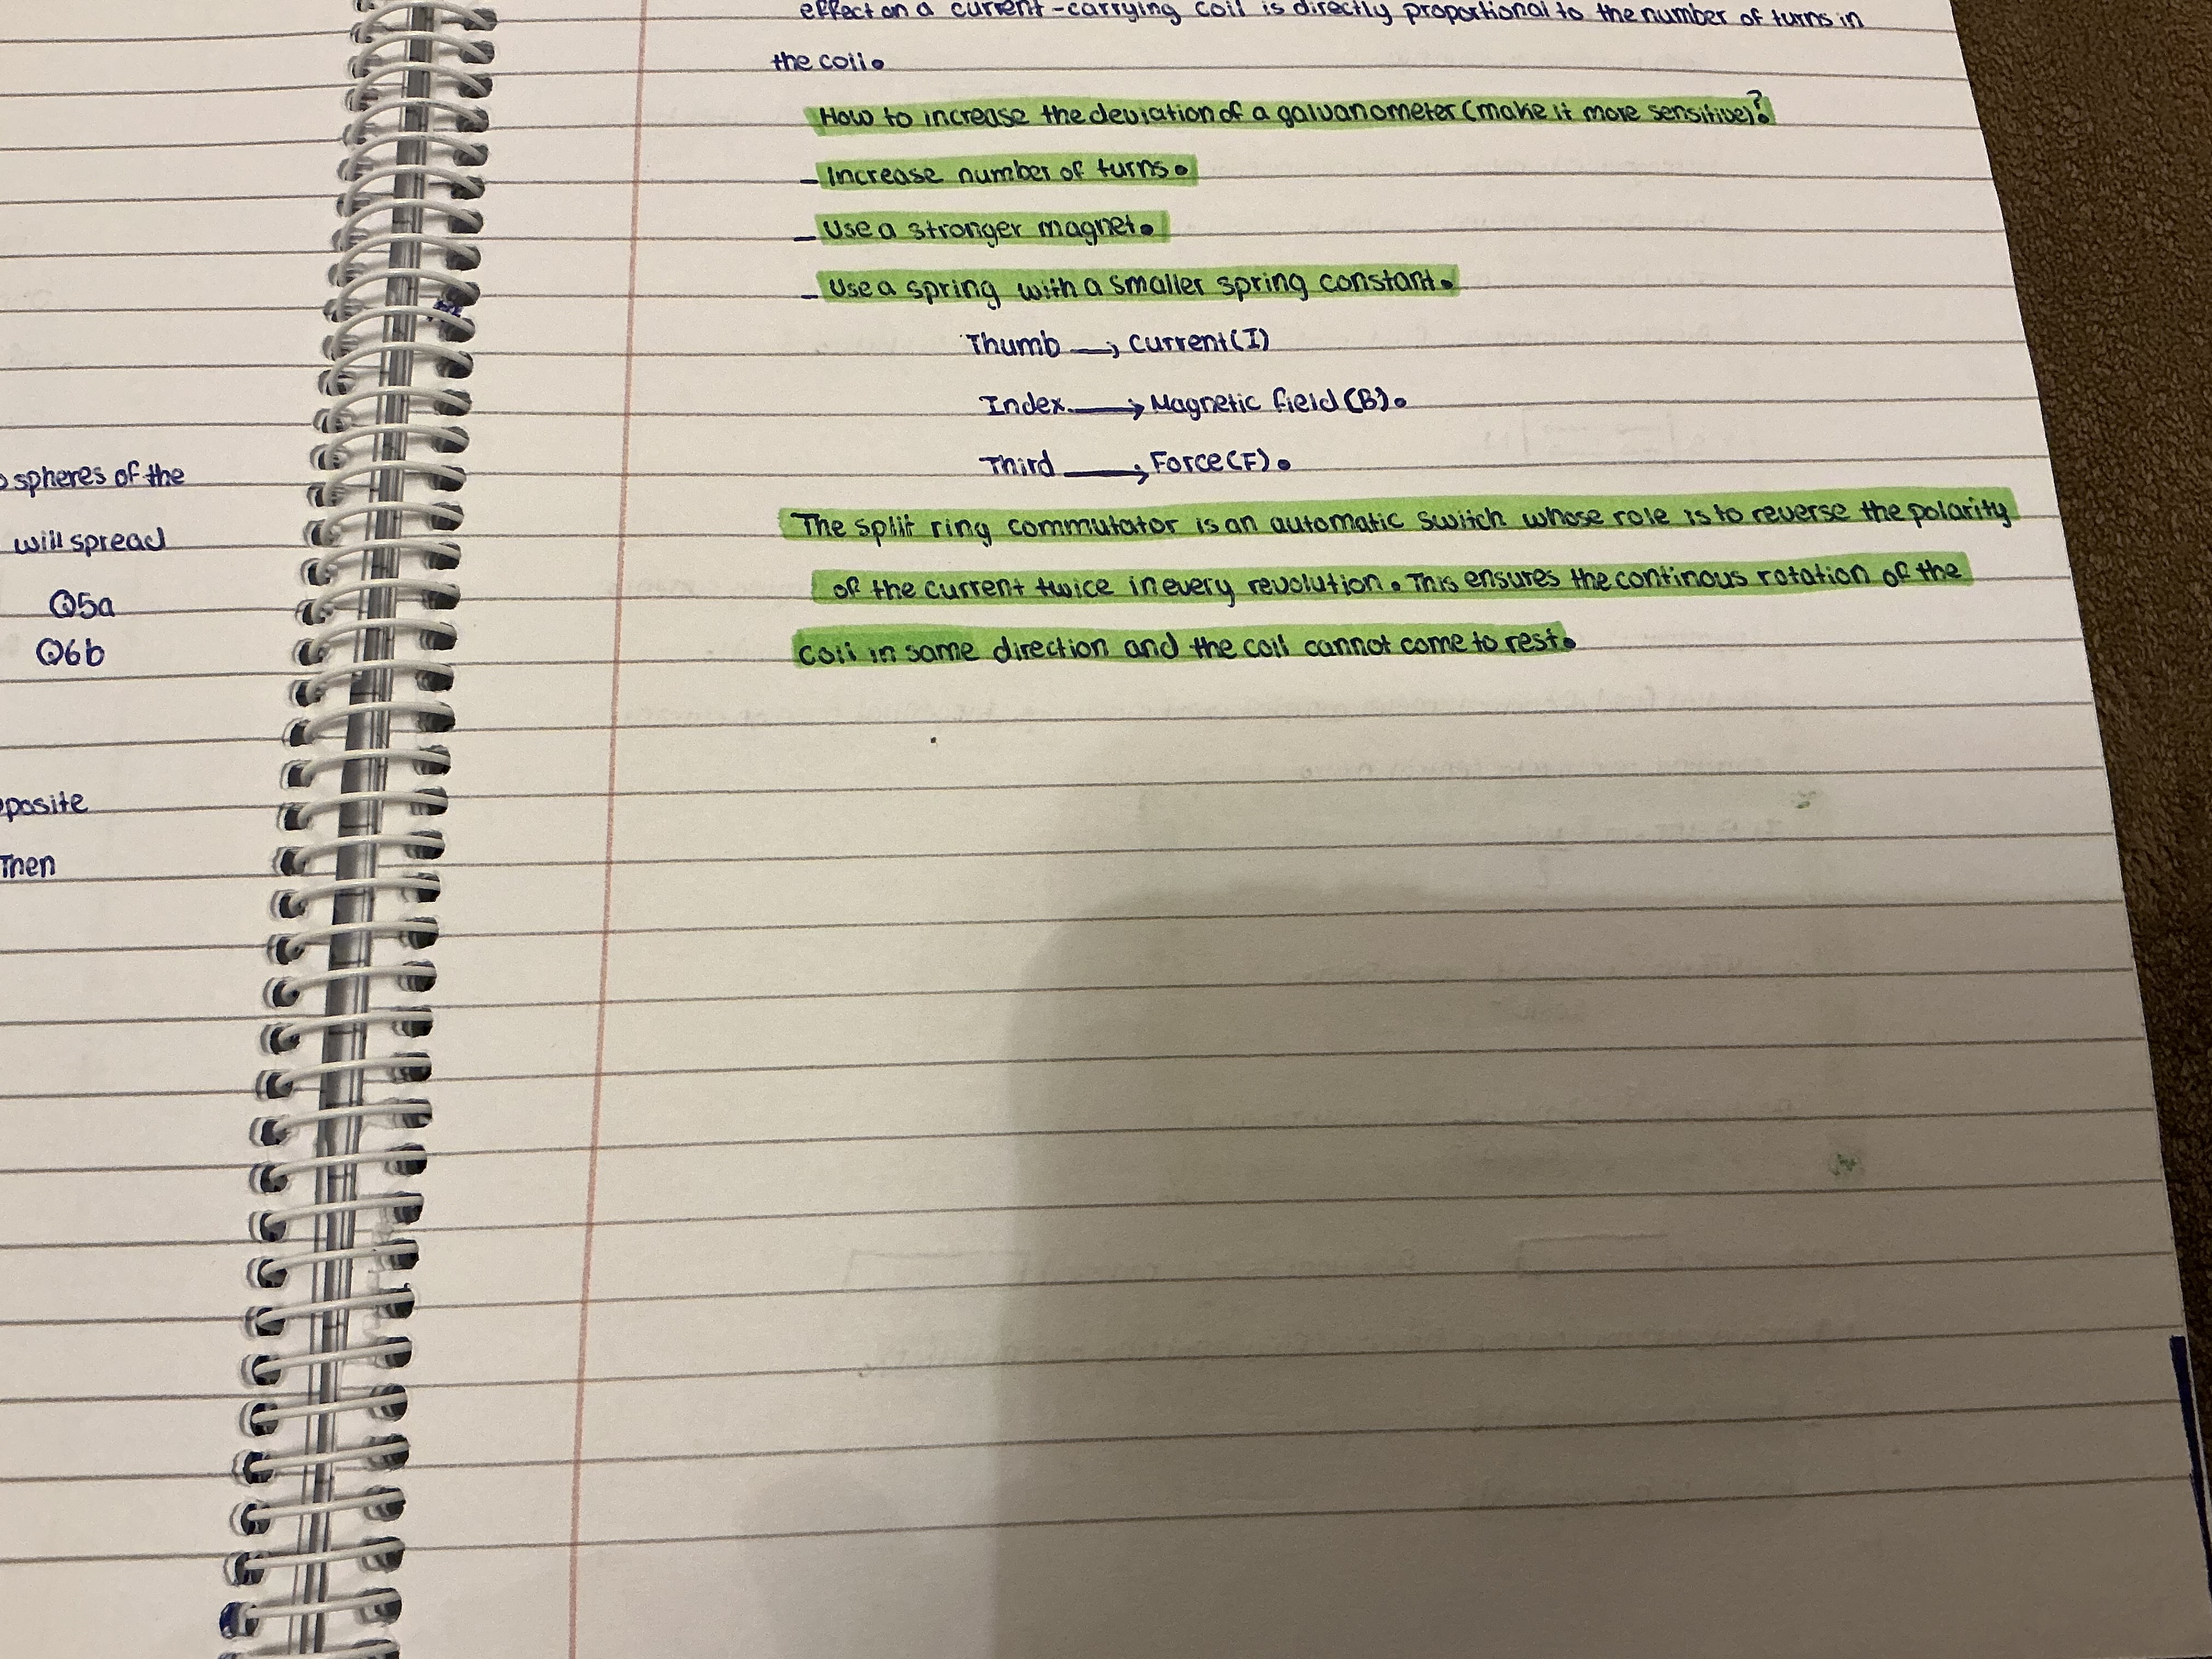 effect on a current-carrying coil is directly proportional to the number of turns in
the coil.
How to increase the deviation of a galvanometer (make it more sensitive)?
- Increase number of turns.
- Use a stronger magnet.
- Use a spring with a smaller spring constant.
Thumb → Current (I)
Index → Magnetic field (B).
Third → Force (F).
The split ring commutator is an automatic switch whose role is to reverse the polarity
of the current twice in every revolution. This ensures the continous rotation of the
coil in same direction and the coil cannot come to rest.
spheres of the
will spread
Q5a
Q6b
posite
Then